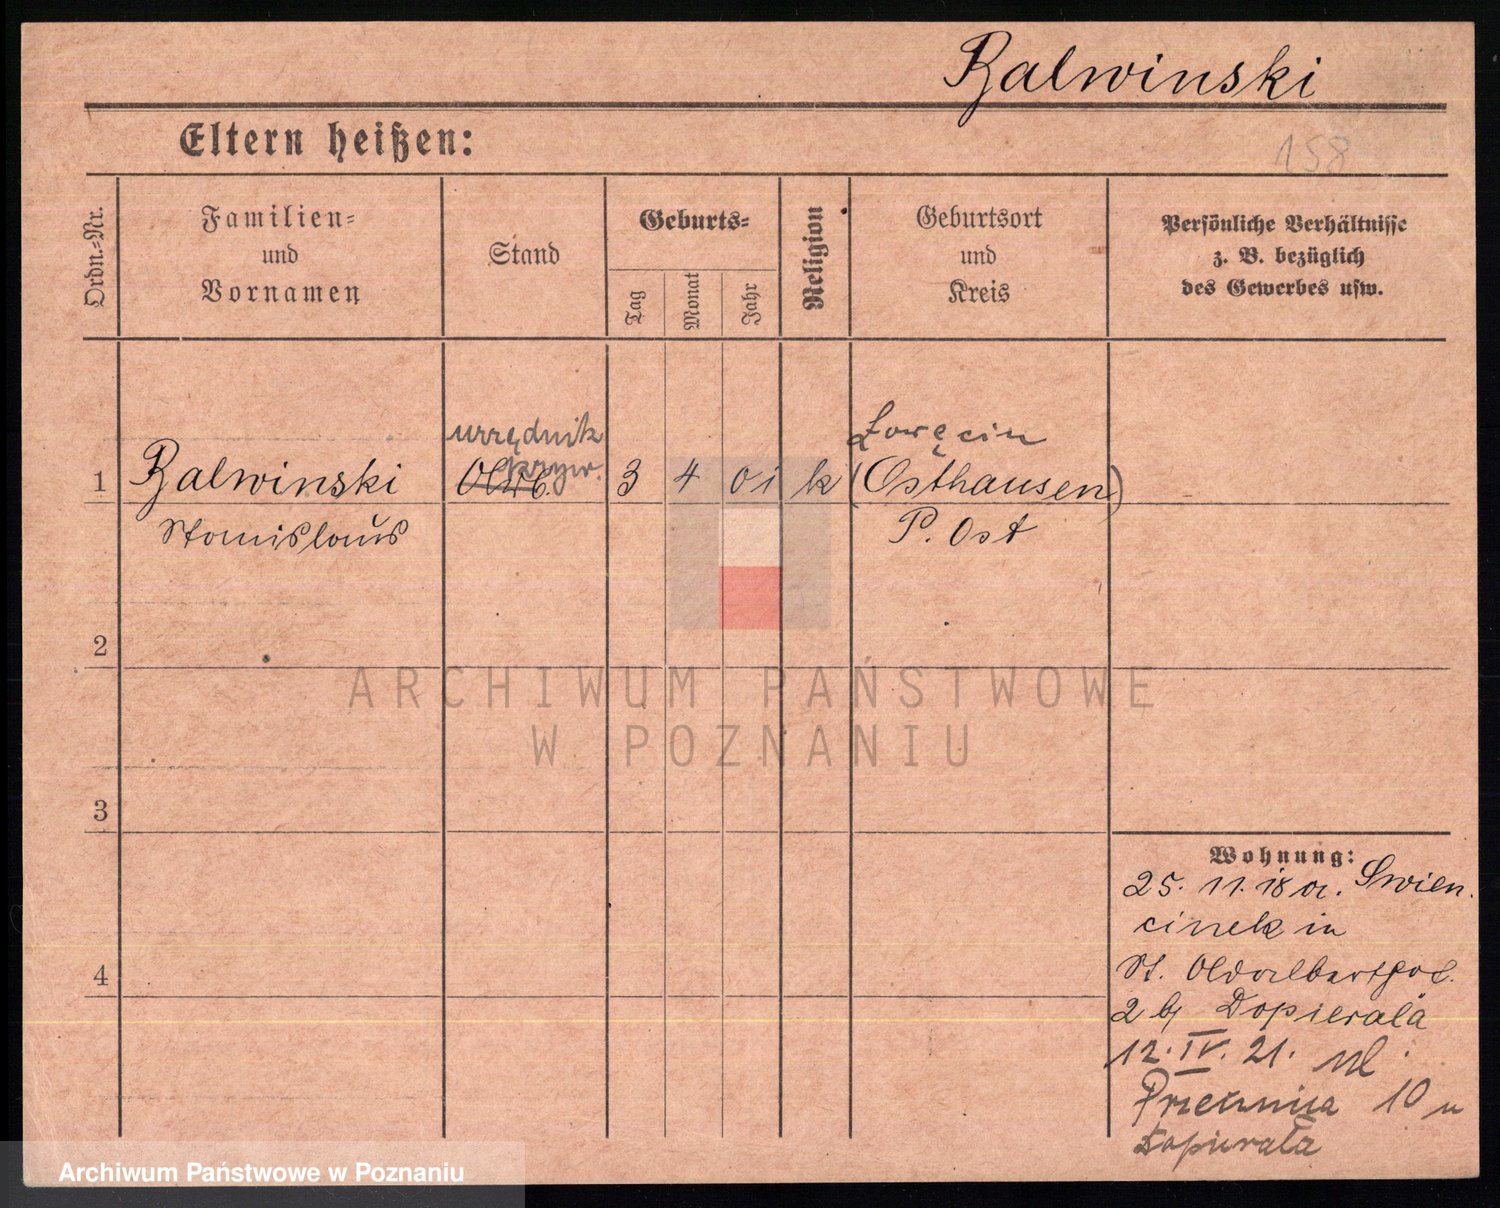 Balwinski
Eltern heißen:
158
Ordn.=Nr.
Familien=
und
Vornamen
Stand
Geburts=
Tag
Monat
Jahr
Religion
Geburtsort
und
Kreis
Persönliche Verhältnisse
z. B. bezüglich
des Gewerbes usw.
urzędnik Zaręcin
1 Balwinski 3 4 01 k (Osthausen)
Stanislaus P. Ost
2
ARCHIWUM PAŃSTWOWE
W POZNANIU
3
Wohnung:
25. 11. 18 a. Swien.
cinek in
St. Adalbertstr.
4
2 b/ Dopierala
12. IV. 21. ul.
Przecznica 10 u
Dopierała
Archiwum Państwowe w Poznaniu